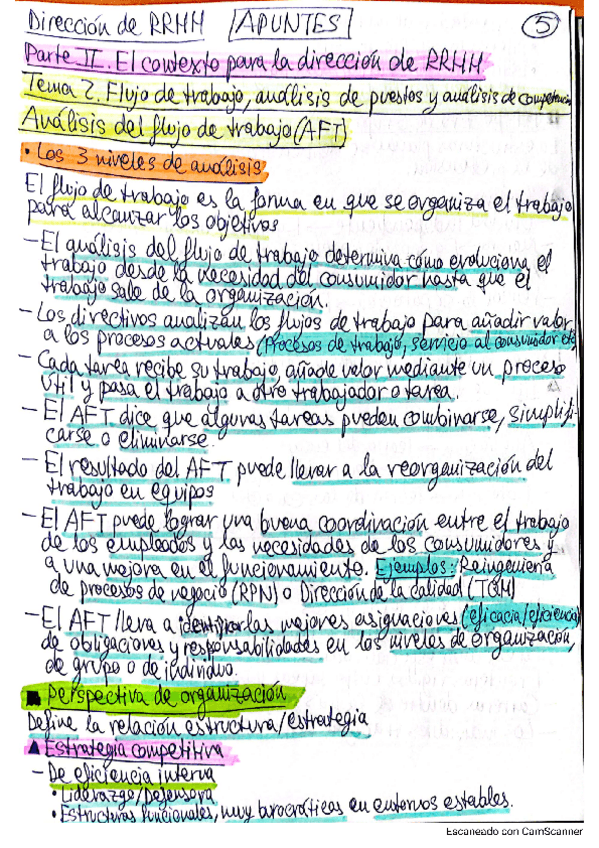 Dirección de RRHH APUNTES 5
Parte II. El contexto para la dirección de RRHH
Tema 2. Flujo de trabajo, análisis de puestos y análisis de competencias
Análisis del flujo de trabajo (AFT)
• Los 3 niveles de análisis
El flujo de trabajo es la forma en que se organiza el trabajo
para alcanzar los objetivos
- El análisis del flujo de trabajo determina cómo evoluciona el
trabajo desde la necesidad del consumidor hasta que el
trabajo sale de la organización.
- Los directivos analizan los flujos de trabajo para añadir valor
a los procesos actuales (Procesos de trabajo, servicio al consumidor etc)
- Cada tarea recibe su trabajo, añade valor mediante un proceso
útil y pasa el trabajo a otro trabajador o tarea.
- El AFT dice que algunas tareas pueden combinarse, simplifi-
carse o eliminarse.
- El resultado del AFT puede llevar a la reorganización del
trabajo en equipos
- El AFT puede lograr una buena coordinación entre el trabajo
de los empleados y las necesidades de los consumidores y
a una mejora en el funcionamiento. Ejemplos: Reingeniería
de procesos de negocio (RPN) o Dirección de la calidad (TQM)
- El AFT lleva a identificar las mejores asignaciones (eficacia/eficiencia)
de obligaciones y responsabilidades en los niveles de organización,
de grupo o de individuo.
■ Perspectiva de organización
Define la relación estructura/estrategia
▲ Estrategia competitiva
- De eficiencia interna
• Liderazgo/Defensora
• Estructuras funcionales, muy burocráticas en entornos estables.
Escaneado con CamScanner